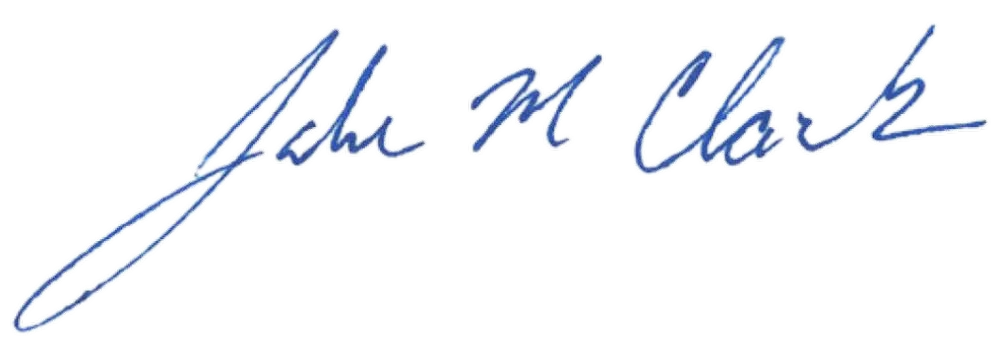 John M Clark